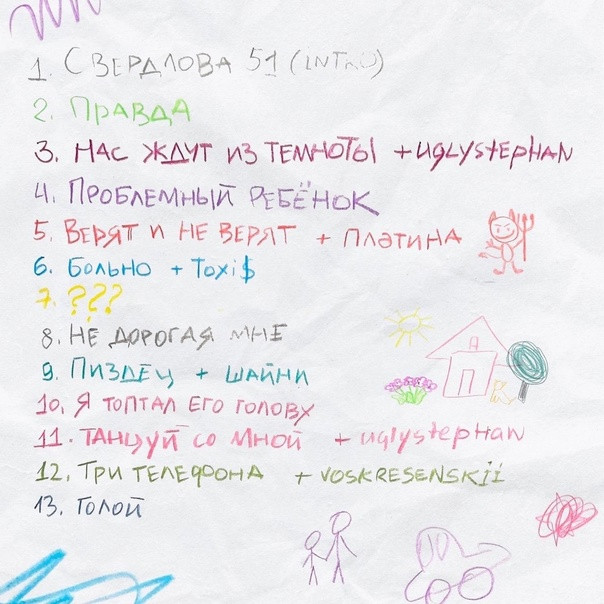 1. Свердлова 51 (INTRO)
2. Правда
3. Нас ждут из темноты +uglystephan
4. Проблемный ребёнок
5. Верят и не верят + Платина
6. Больно + Toxi$
7. ???
8. Не дорогая мне
9. Пиздец + шайни
10. Я топтал его голову
11. Танцуй со мной + uglystephan
12. Три телефона + voskresenskii
13. Голой